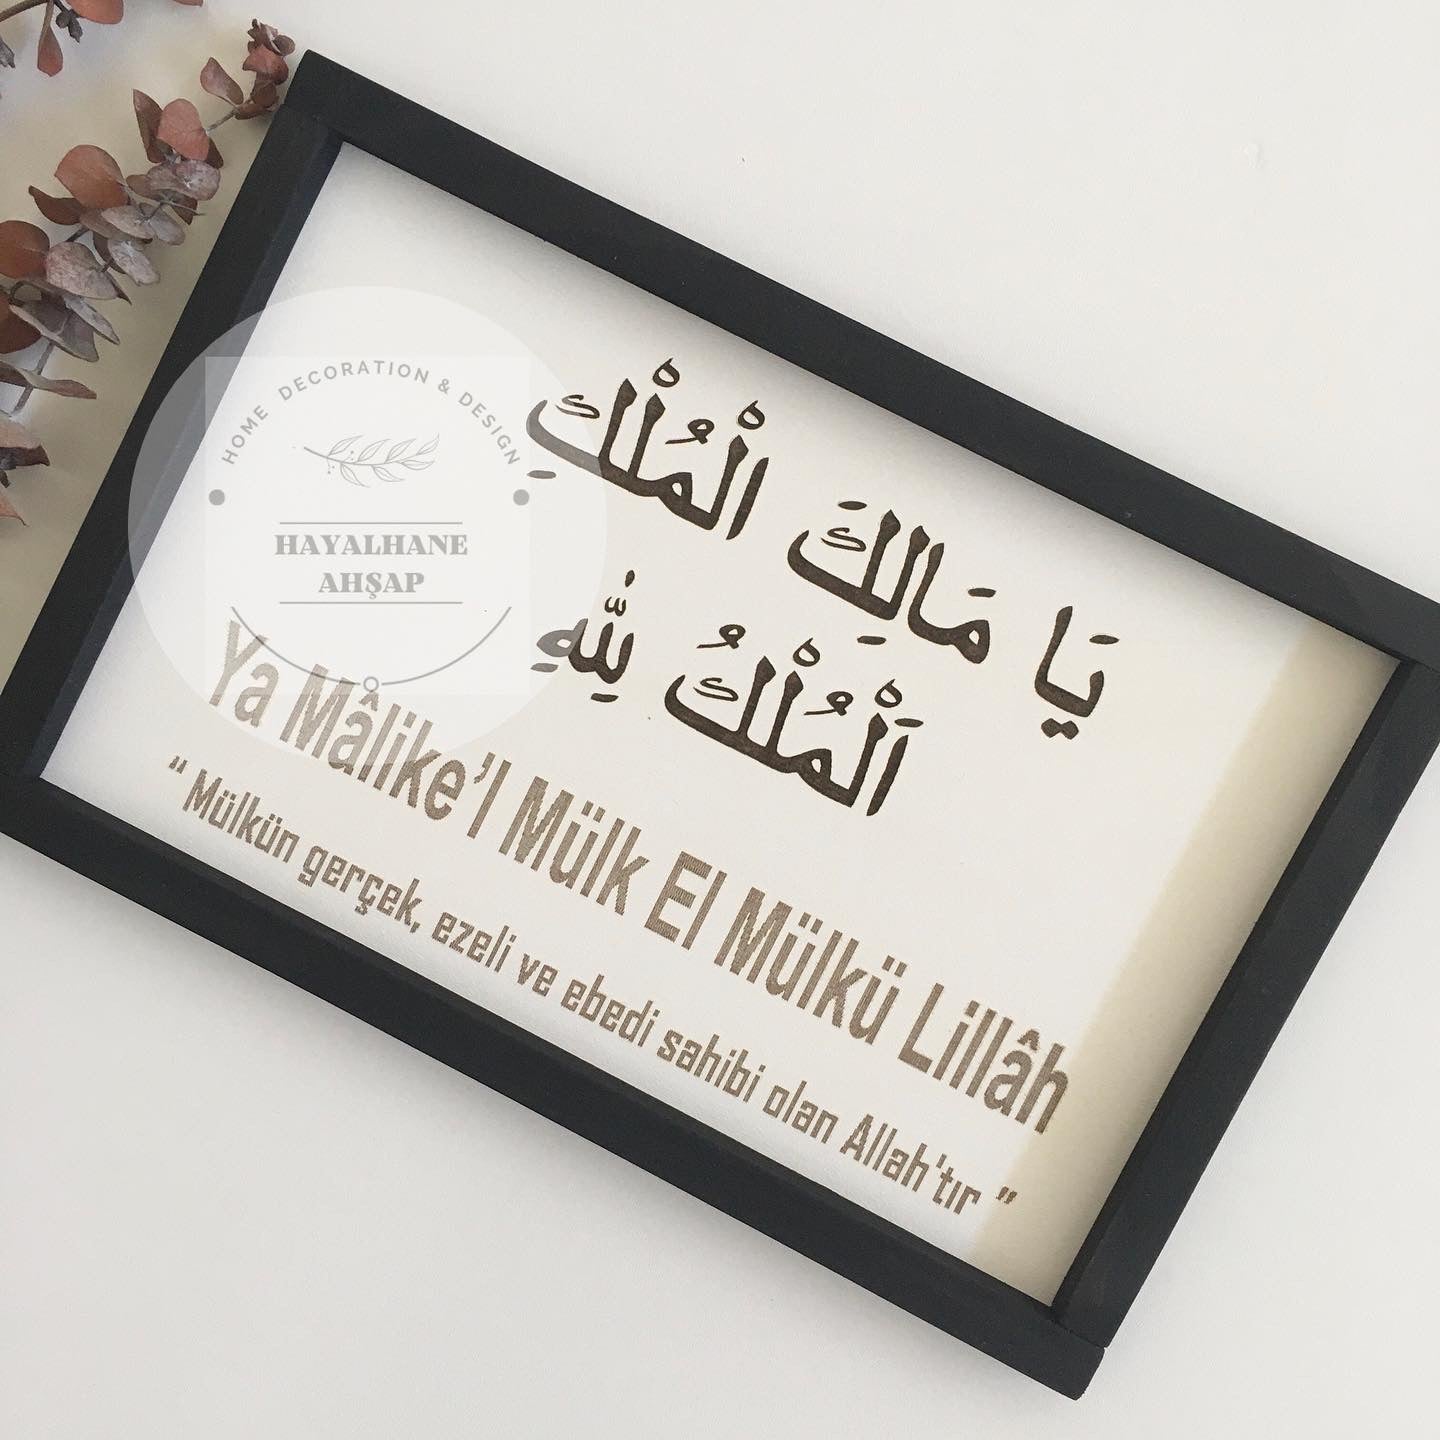 HOME DECORATION & DESIGN
HAYALHANE
AHŞAP
يَا مَالِكَ الْمُلْكِ
اَلْمُلْكُ لِلّٰهِ
Ya Mâlike'l Mülk El Mülkü Lillâh
“ Mülkün gerçek, ezeli ve ebedi sahibi olan Allah'tır ”